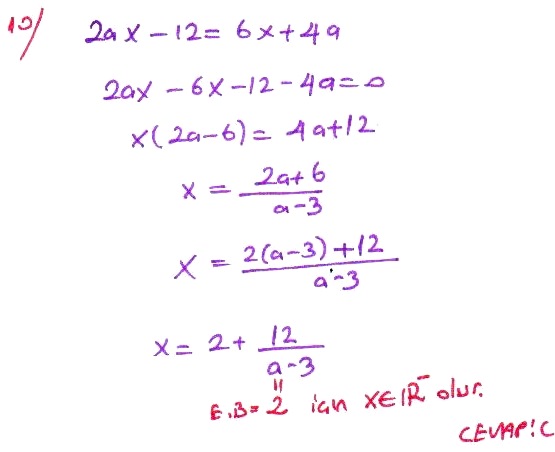 10/ 2ax - 12 = 6x + 4a
2ax - 6x - 12 - 4a = 0
x(2a - 6) = 4a + 12
x = (2a + 6) / (a - 3)
x = (2(a - 3) + 12) / (a - 3)
x = 2 + 12 / (a - 3)
E.B = 2 için x∈IR⁻ olur.
CEVAP: C